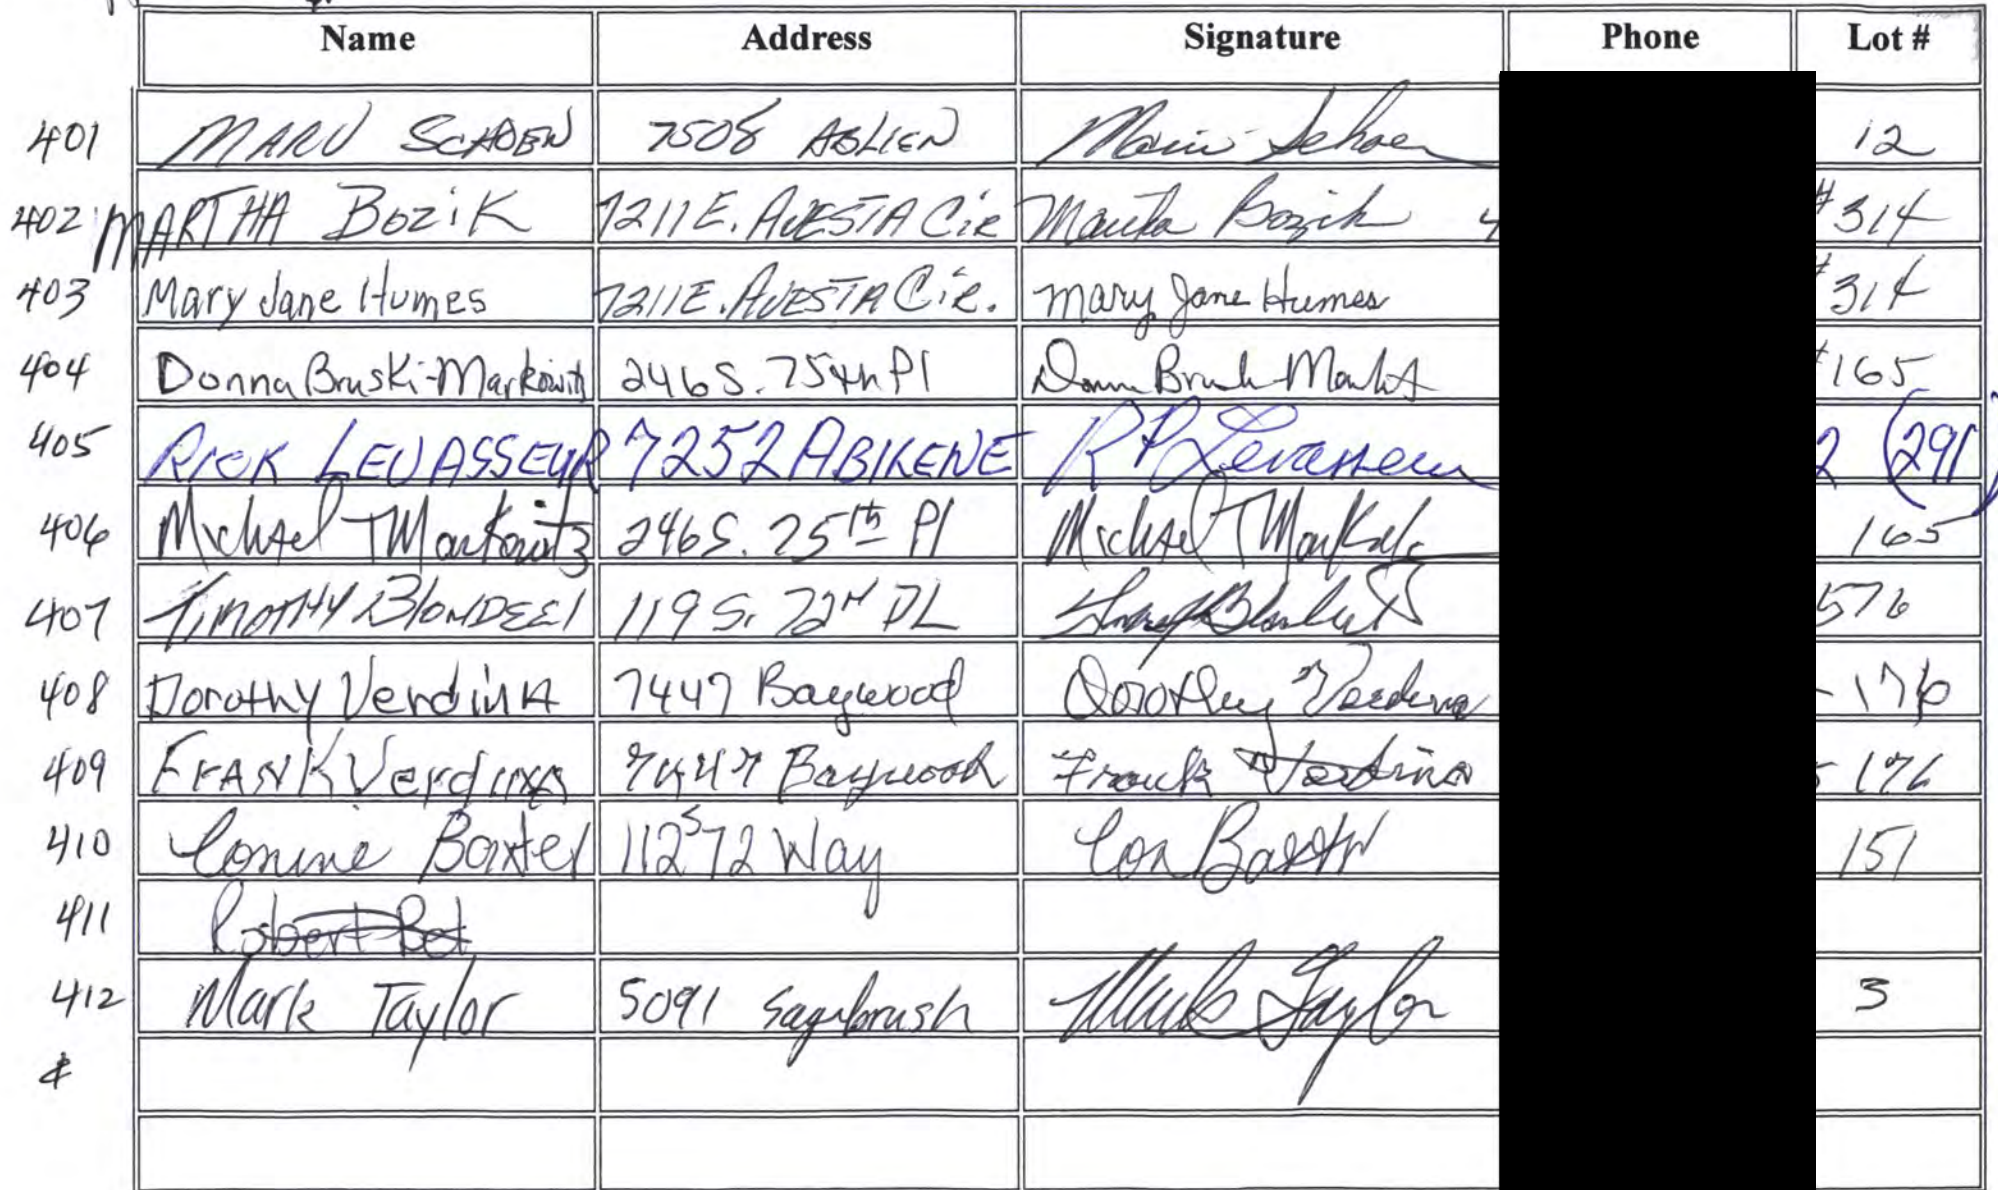 Name Address Signature Phone Lot #
401 MARV SCHOEN 7508 ABLIEN 12
402 MARTHA BOZIK 7211 E. AVESTA CIR Martha Bozik 4 #314
403 Mary Jane Humes 7211 E. AVESTA Cir. Mary Jane Humes #314
404 Donna Bruski-Markowitz 246 S. 75th Pl #165
405 RICK LEVASSEUR 7252 ABILENE R P Levasseur 2 (291)
406 Michael T Markowitz 246 S. 75th Pl Michael T 165
407 TIMOTHY BLONDEEL 119 S. 72nd PL 576
408 Dorothy Verdina 7447 Baywood Dorothy Verdina - 176
409 FRANK Verdina 7447 Baywood Frank Verdina 176
410 Connie Baxter 112 S 72 Way Con Baxter 151
411 Robert
412 Mark Taylor 5091 Sagebrush Mark Taylor 3